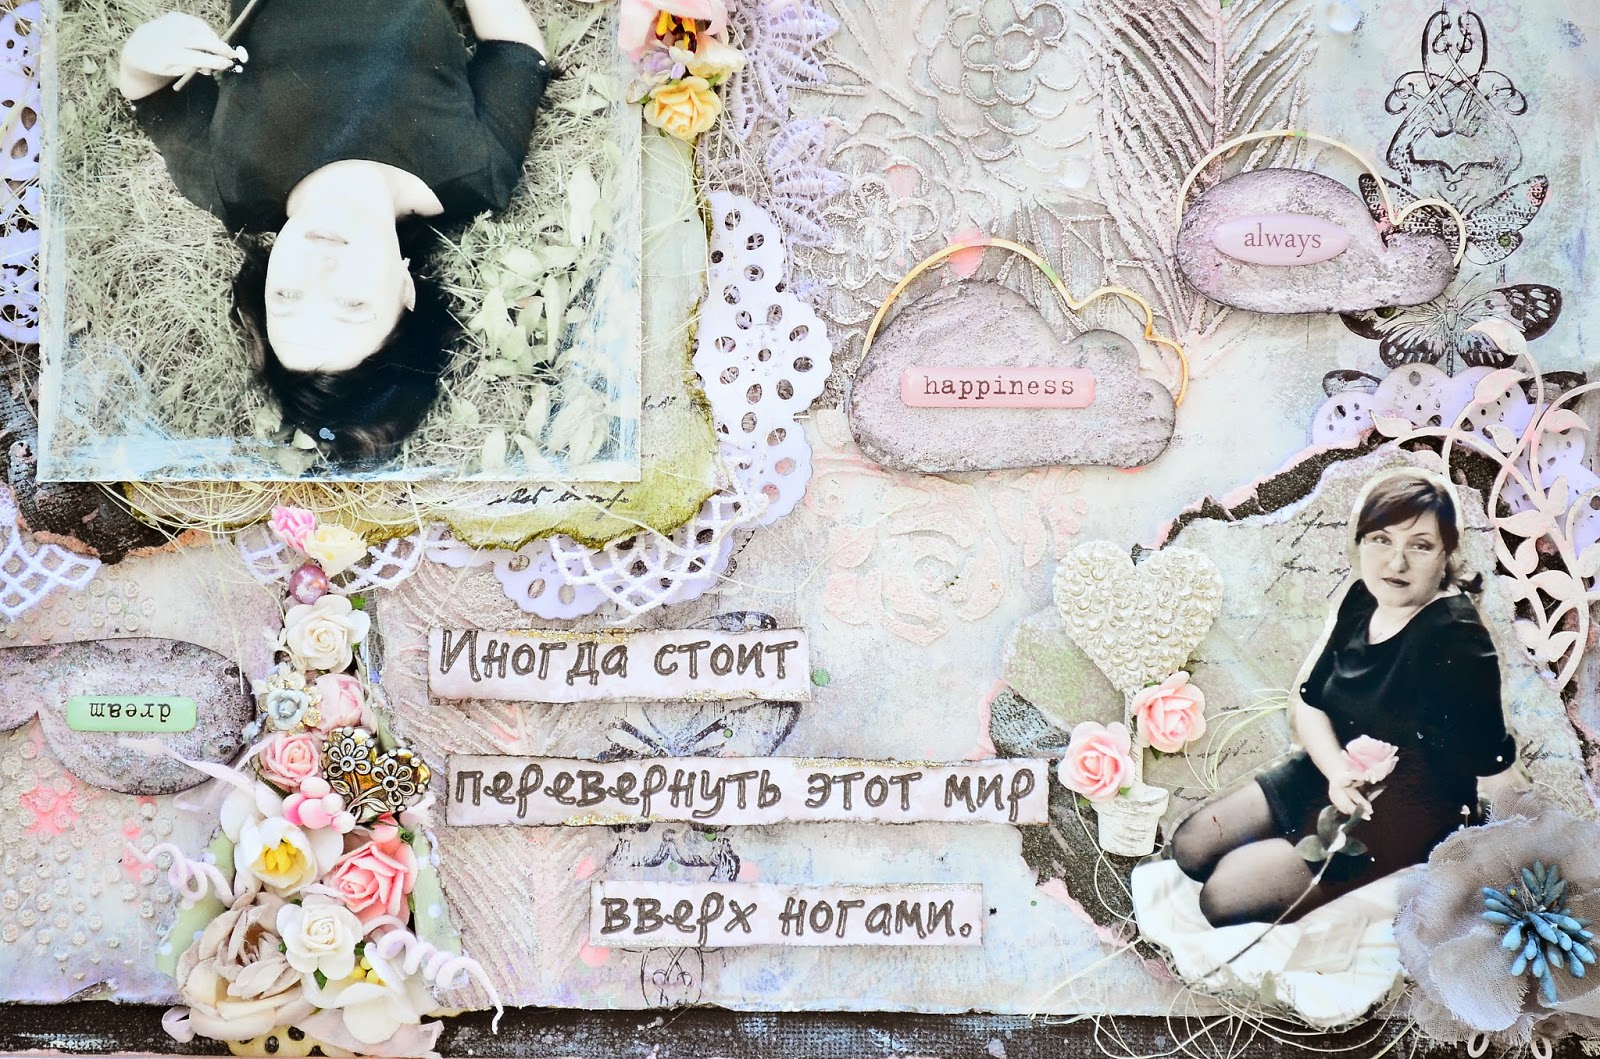 always
happiness
Иногда стоит
dream
перевернуть этот мир
вверх ногами.